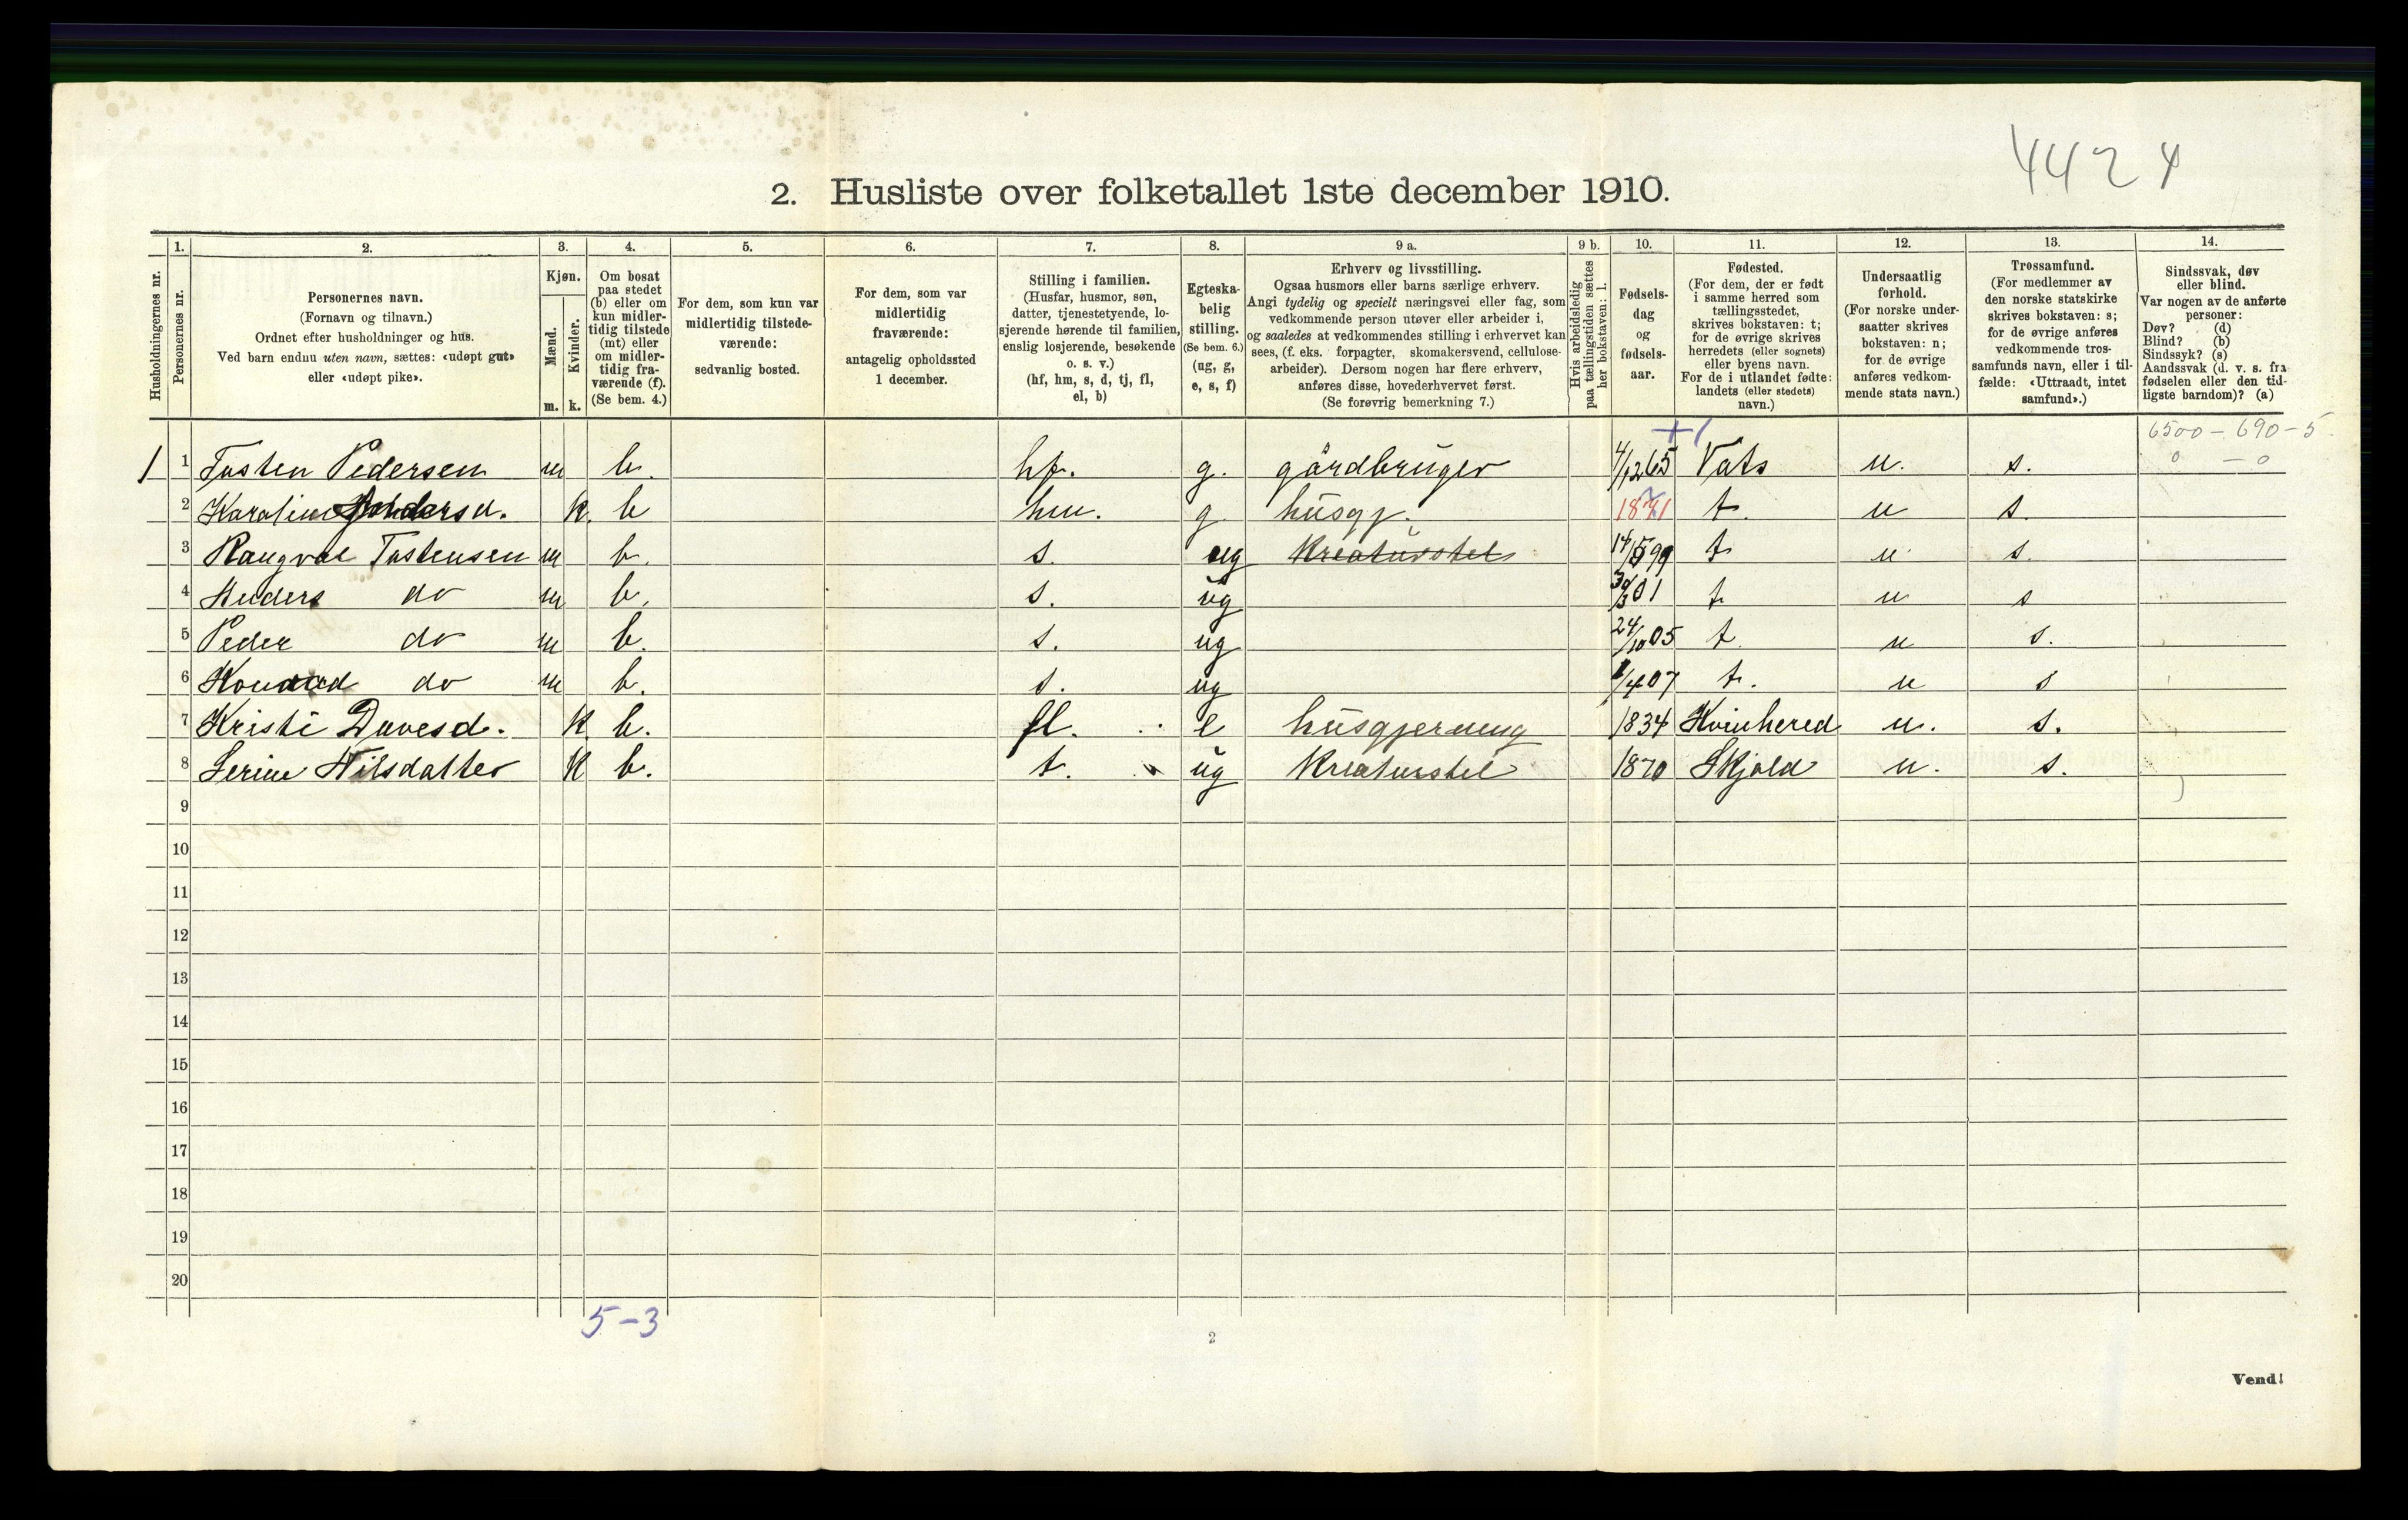 4424
2. Husliste over folketallet 1ste december 1910.
Husholdningernes nr.
1.
Personernes nr.
2.
Personernes navn.
(Fornavn og tilnavn.)
Ordnet efter husholdninger og hus.
Ved barn endnu uten navn, sættes: «udøpt gut»
eller «udøpt pike».
3.
Kjøn.
Mænd.
Kvinder.
m. k.
4.
Om bosat
paa stedet
(b) eller om
kun midler-
tidig tilstede
(mt) eller
om midler-
tidig fra-
værende (f).
(Se bem. 4.)
5.
For dem, som kun var
midlertidig tilstede-
værende:
sedvanlig bosted.
6.
For dem, som var
midlertidig
fraværende:
antagelig opholdssted
1 december.
7.
Stilling i familien.
(Husfar, husmor, søn,
datter, tjenestetyende, lo-
sjerende hørende til familien,
enslig losjerende, besøkende
o. s. v.)
(hf, hm, s, d, tj, fl,
el, b)
8.
Egteska-
belig
stilling.
(Se bem. 6.)
(ug, g,
e, s, f)
9 a.
Erhverv og livsstilling.
Ogsaa husmors eller barns særlige erhverv.
Angi tydelig og specielt næringsvei eller fag, som
vedkommende person utøver eller arbeider i,
og saaledes at vedkommendes stilling i erhvervet kan
sees, (f. eks. forpagter, skomakersvend, cellulose-
arbeider). Dersom nogen har flere erhverv,
anføres disse, hovederhvervet først.
(Se forøvrig bemerkning 7.)
9 b.
Hvis arbeidsledig
paa tællingstiden sættes
her bokstaven: l.
10.
Fødsels-
dag
og
fødsels-
aar.
11.
Fødested.
(For dem, der er født
i samme herred som
tællingsstedet,
skrives bokstaven: t;
for de øvrige skrives
herredets (eller sognets)
eller byens navn.
For de i utlandet fødte:
landets (eller stedets)
navn.)
12.
Undersaatlig
forhold.
(For norske under-
saatter skrives
bokstaven: n;
for de øvrige
anføres vedkom-
mende stats navn.)
13.
Trossamfund.
(For medlemmer av
den norske statskirke
skrives bokstaven: s;
for de øvrige anføres
vedkommende tros-
samfunds navn, eller i til-
fælde: «Uttraadt, intet
samfund».)
14.
Sindssvak, døv
eller blind.
Var nogen av de anførte
personer:
Døv? (d)
Blind? (b)
Sindssyk? (s)
Aandssvak (d. v. s. fra
fødselen eller den tid-
ligste barndom)? (a)
+1 6500 - 690 - 5
0 - 0
1 1 Tosten Pedersen m b. hf. g. gårdbruger 4/12 65 Vats n. s.
2 Karoline Andersd. k. b hm. g. husgj. t. n s.
3 Rangval Tostensen m b. s. ug Kreaturstel 14/5 99 t n s.
4 Anders do m b. s. ug 30/3 01 t n s
5 Peder do m b. s. ug 24/10 05 t. n s.
6 Konrad do m b. s. ug /4 07 t. n s
7 Kristi Davesd. k. b. fl. e husgjerning 1834 Kvinhered n. s.
8 Serine Nilsdatter k b. t. ug Kreaturstel 1870 Skjold n. s.
9
10
11
12
13
14
15
16
17
18
19
20
5-3
2
Vend!